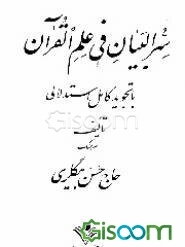 سر البیان فی علم القرآن
با تجوید کامل استدلالی
تألیف
سرهنگ
حاج حسن بیگلری
Gisoom
.com